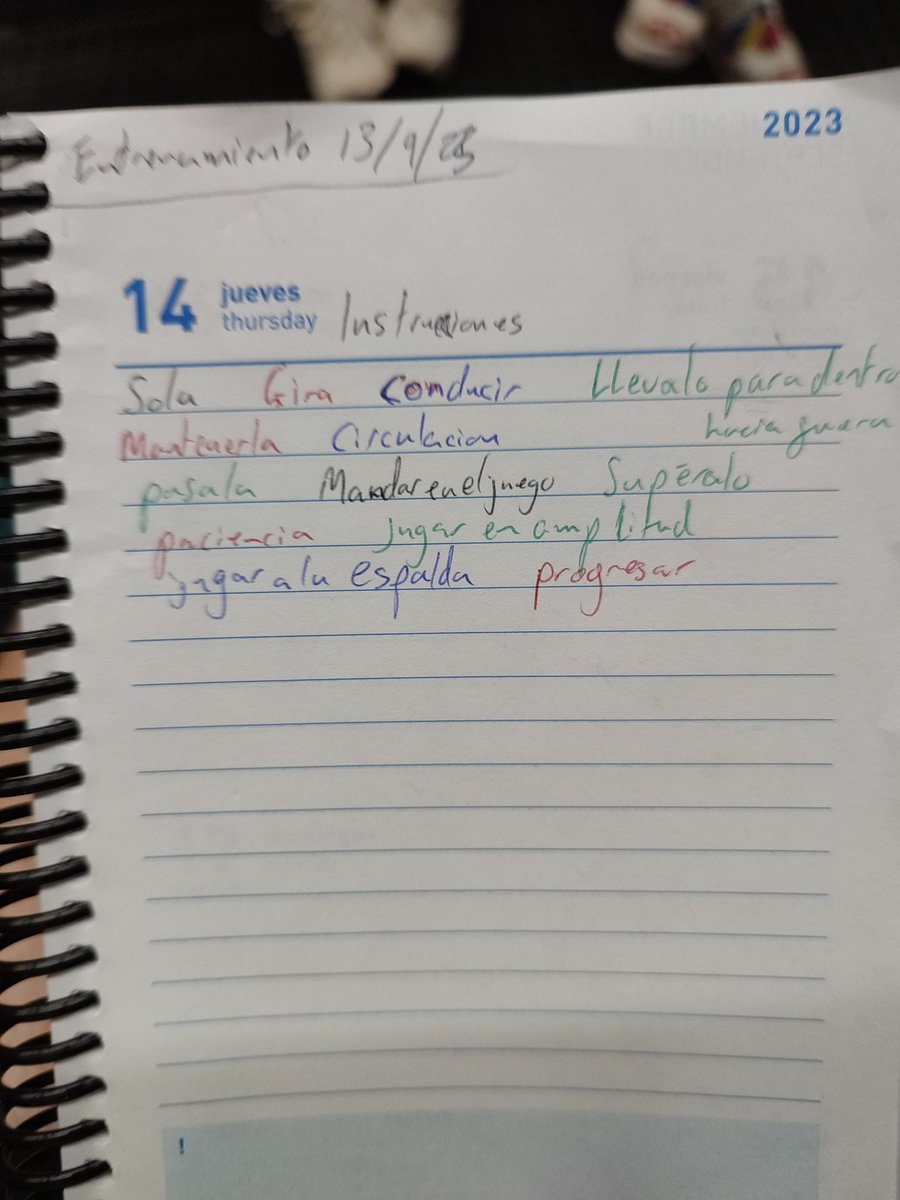 Entrenamiento 13/9/23
2023
14 jueves
thursday
Instrucciones
Sola Gira Conducir Llevalo para dentro
Mantenerla Circulacion hacia fuera
pasala Mandar en el juego Supéralo
paciencia jugar en amplitud
jugar a la espalda progresar
!